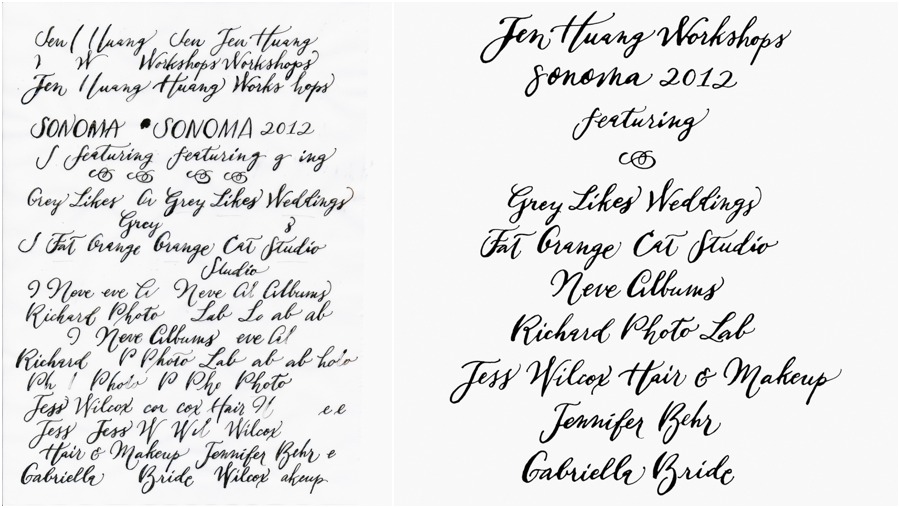 Jen Huang Jen Jen Huang
W Workshops Workshops
Jen Huang Huang Works hops
SONOMA SONOMA 2012
featuring featuring g ing
Grey Likes Gr Grey Likes Weddings
Grey
Fat Orange Orange Cat Studio
Studio
Neve eve Neve Al Albums
Richard Photo Lab La ab ab
Neve Albums eve Al
Richard P Photo Lab ab ab hoto
Ph Photo P Pho Photo
Jess Wilcox cox cox Hair e e
Jess Jess W Wil Wilcox
Hair & Makeup Jennifer Behr e
Gabriella Bride Wilcox akeup
Jen Huang Workshops
Sonoma 2012
featuring
Grey Likes Weddings
Fat Orange Cat Studio
Neve Albums
Richard Photo Lab
Jess Wilcox Hair & Makeup
Jennifer Behr
Gabriella Bride